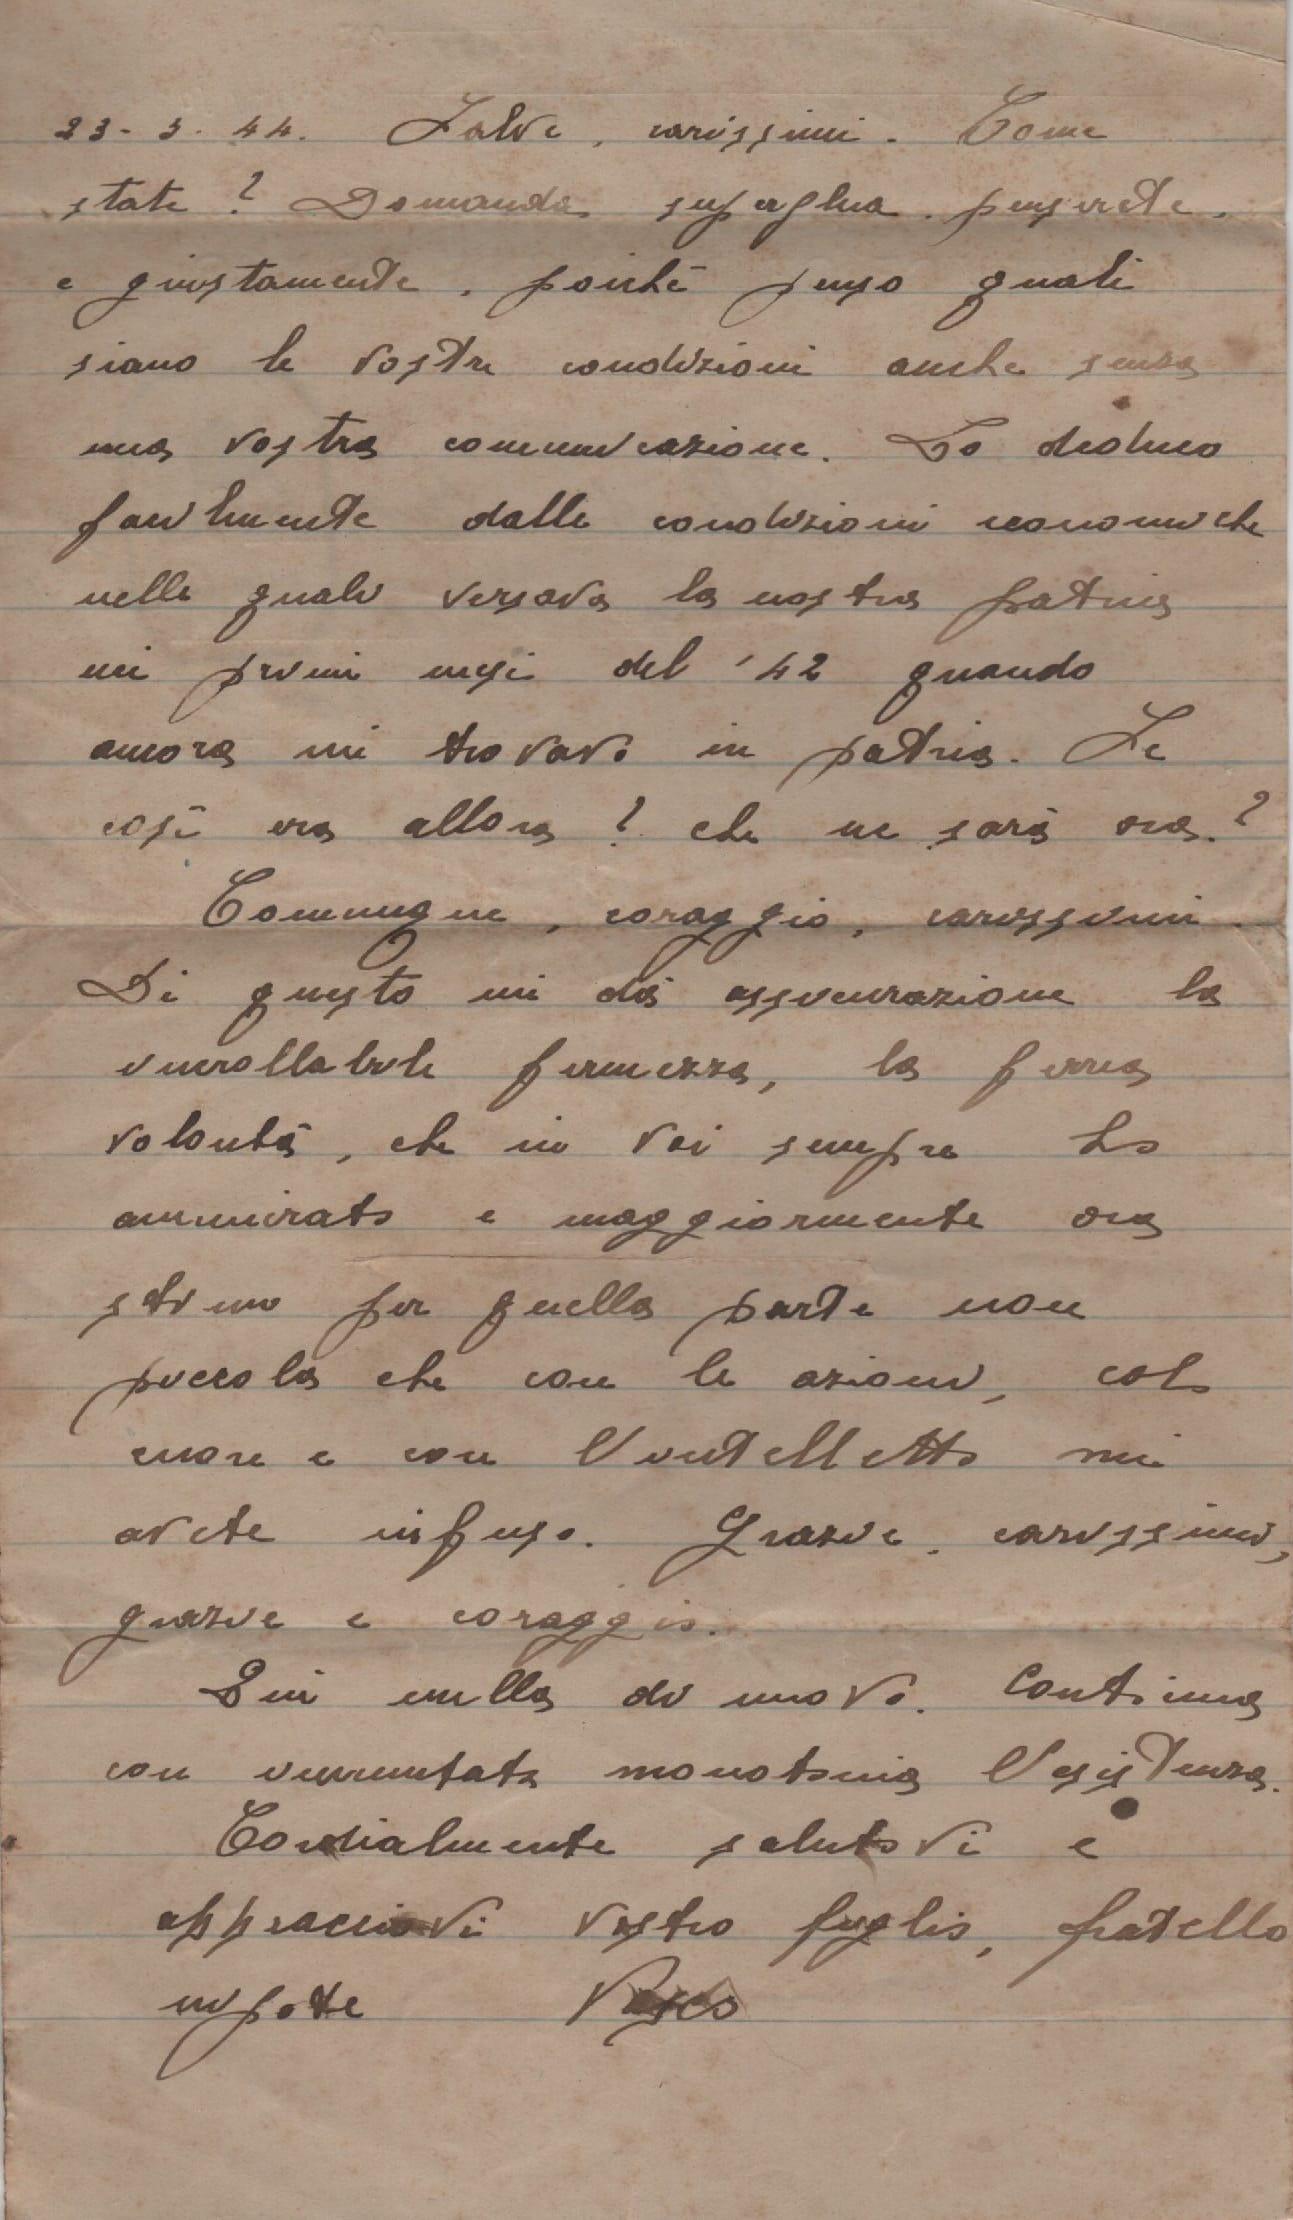 23-3-44. Salve, carissimi. Come
state? Domanda superflua, penserete,
e giustamente, poiché penso quali
siano le vostre condizioni anche senza
una vostra comunicazione. Lo deduco
facilmente dalle condizioni economiche
nelle quali versava la nostra patria
nei primi mesi del '42 quando
ancora mi trovavo in patria. Se
così era allora? che ne sarà ora?
Comunque, coraggio, carissimi.
Di questo mi dà assicurazione la
incrollabile fermezza, la ferrea
volontà, che in voi sempre ho
ammirato e maggiormente ora
stimo per quella parte non
piccola che con le azioni, col
cuore e con l'intelletto mi
avete infuso. Grazie, carissimi,
grazie e coraggio.
Qui nulla di nuovo. Continua
con immutata monotonia l'esistenza.
Cordialmente salutovi e
abbracciovi vostro figlio, fratello
nipote Vasco